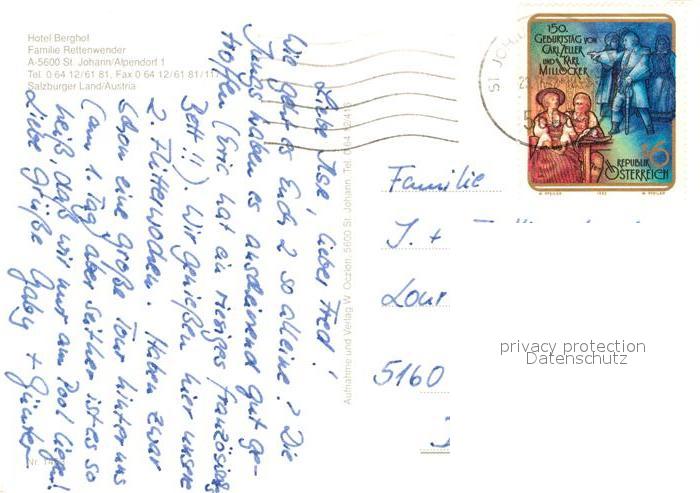 Hotel Berghof
Familie Rettenwender
A-5600 St. Johann/Alpendorf 1
Tel. 0 64 12/61 81, Fax 0 64 12/61 81/11
Salzburger Land/Austria
Liebe Ilse, lieber Fred!
Wie geht es Euch 2 so alleine? Die
Jungs haben es anscheinend gut ge-
troffen (Eric hat ein riesiges französisch
Bett!!). Wir genießen hier unsere
2. Flitterwochen. Haben zwar
schon eine große Tour hinter uns
(am 1. Tag) aber seither ist es so
heiß, daß wir nur am Pool liegen!
Liebe Grüße Gaby + Günter
Nr.
Aufnahme und Verlag W. Oczlon, 5600 St. Johann, Tel. 0 64 12/4
ST. JOH
5600
150.
GEBURTSTAG VON
CARL ZELLER
UND KARL
MILLÖCKER
S 6
REPUBLIK
ÖSTERREICH
1992
Familie
J. +
5160
privacy protection
Datenschutz